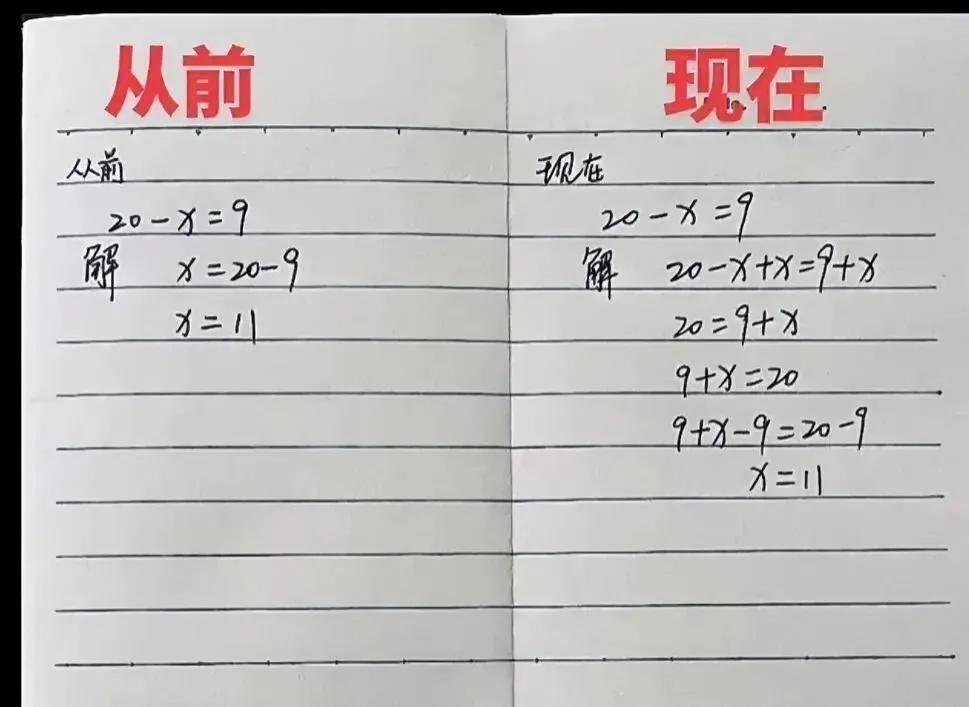 从前
从前
20-x=9
解 x=20-9
x=11
现在
现在
20-x=9
解 20-x+x=9+x
20=9+x
9+x=20
9+x-9=20-9
x=11